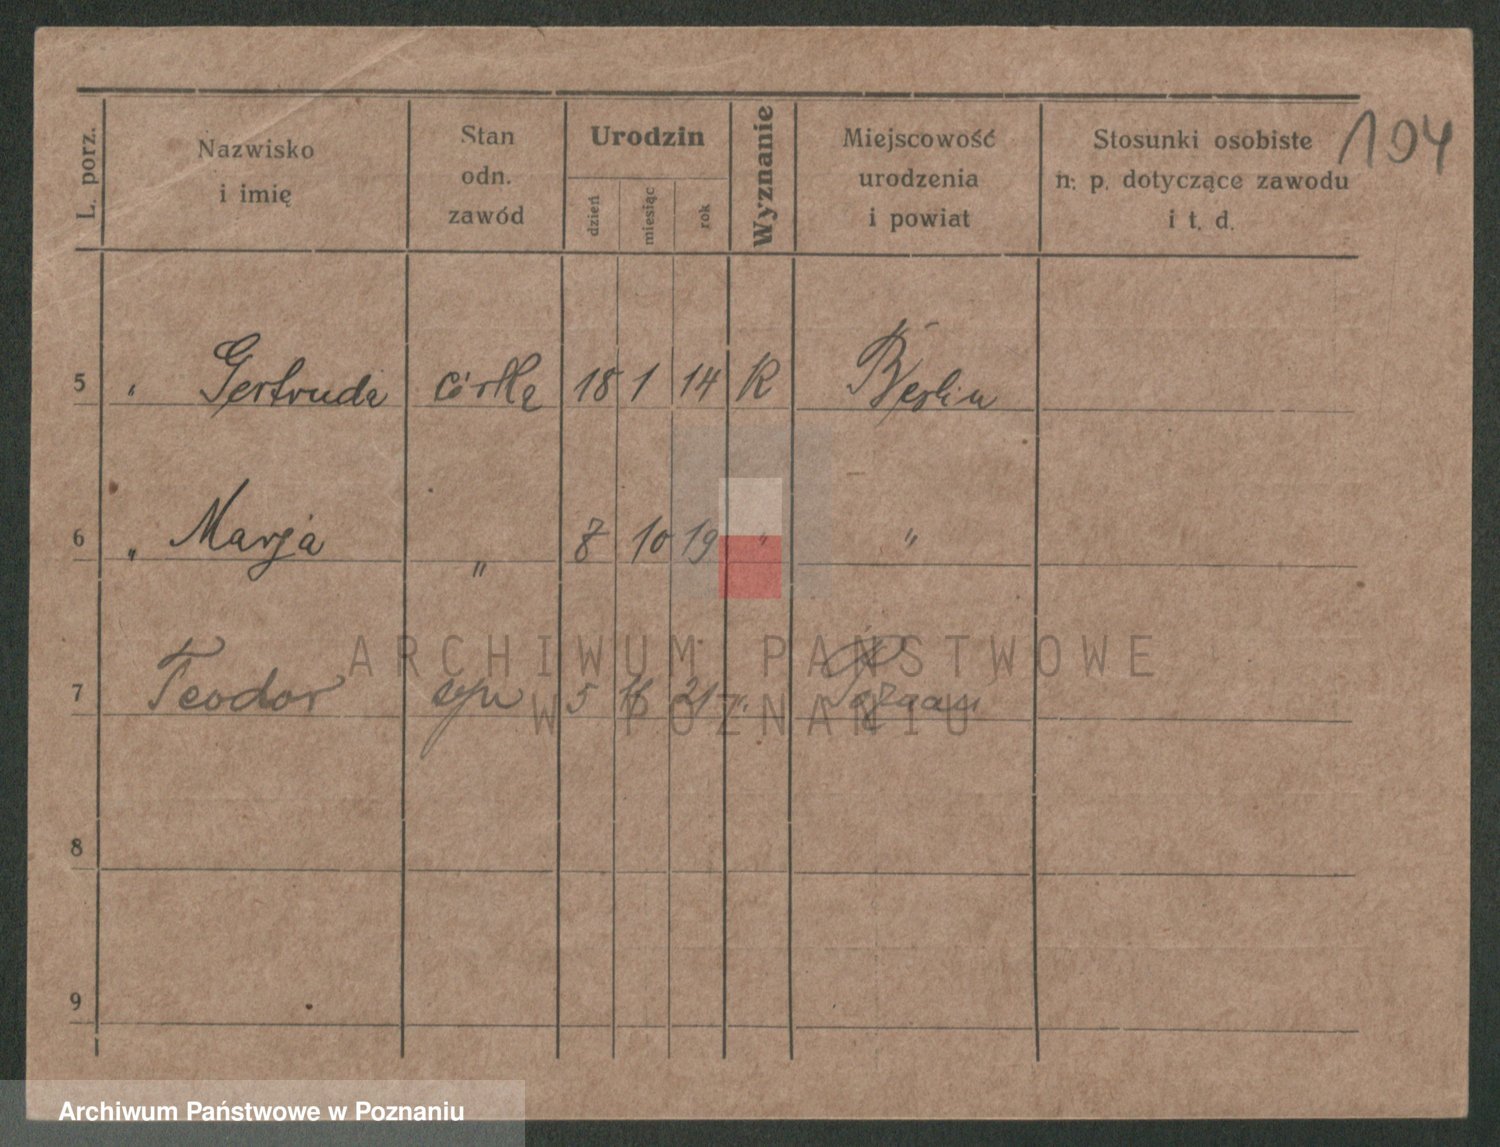 L. porz.
Nazwisko
i imię
Stan
odn.
zawód
Urodzin
dzień
miesiąc
rok
Wyznanie
Miejscowość
urodzenia
i powiat
Stosunki osobiste
n. p. dotyczące zawodu
i t. d.
194
5 " Gertruda córka 18 1 14 R Berlin
6 " Marja " 8 10 19 " "
ARCHIWUM PAŃSTWOWE
W POZNANIU
7 Teodor syn 5 21 " Poznań
8
9
Archiwum Państwowe w Poznaniu